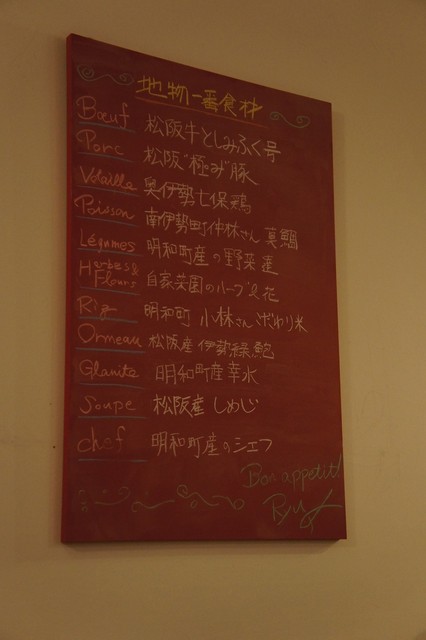 地物一番食材
Bœuf 松阪牛としみふく号
Porc 松阪"極み"豚
Volaille 奥伊勢七保鶏
Poisson 南伊勢町仲林さん 真鯛
Légumes 明和町産の野菜達
Herbes & Fleurs 自家菜園のハーブと花
Riz 明和町 小林さんこだわり米
Ormeau 松阪産 伊勢緑鮑
Glanite 明和町産幸水
Soupe 松阪産 しめじ
chef 明和町産のシェフ
Bon appetit!
Ryu